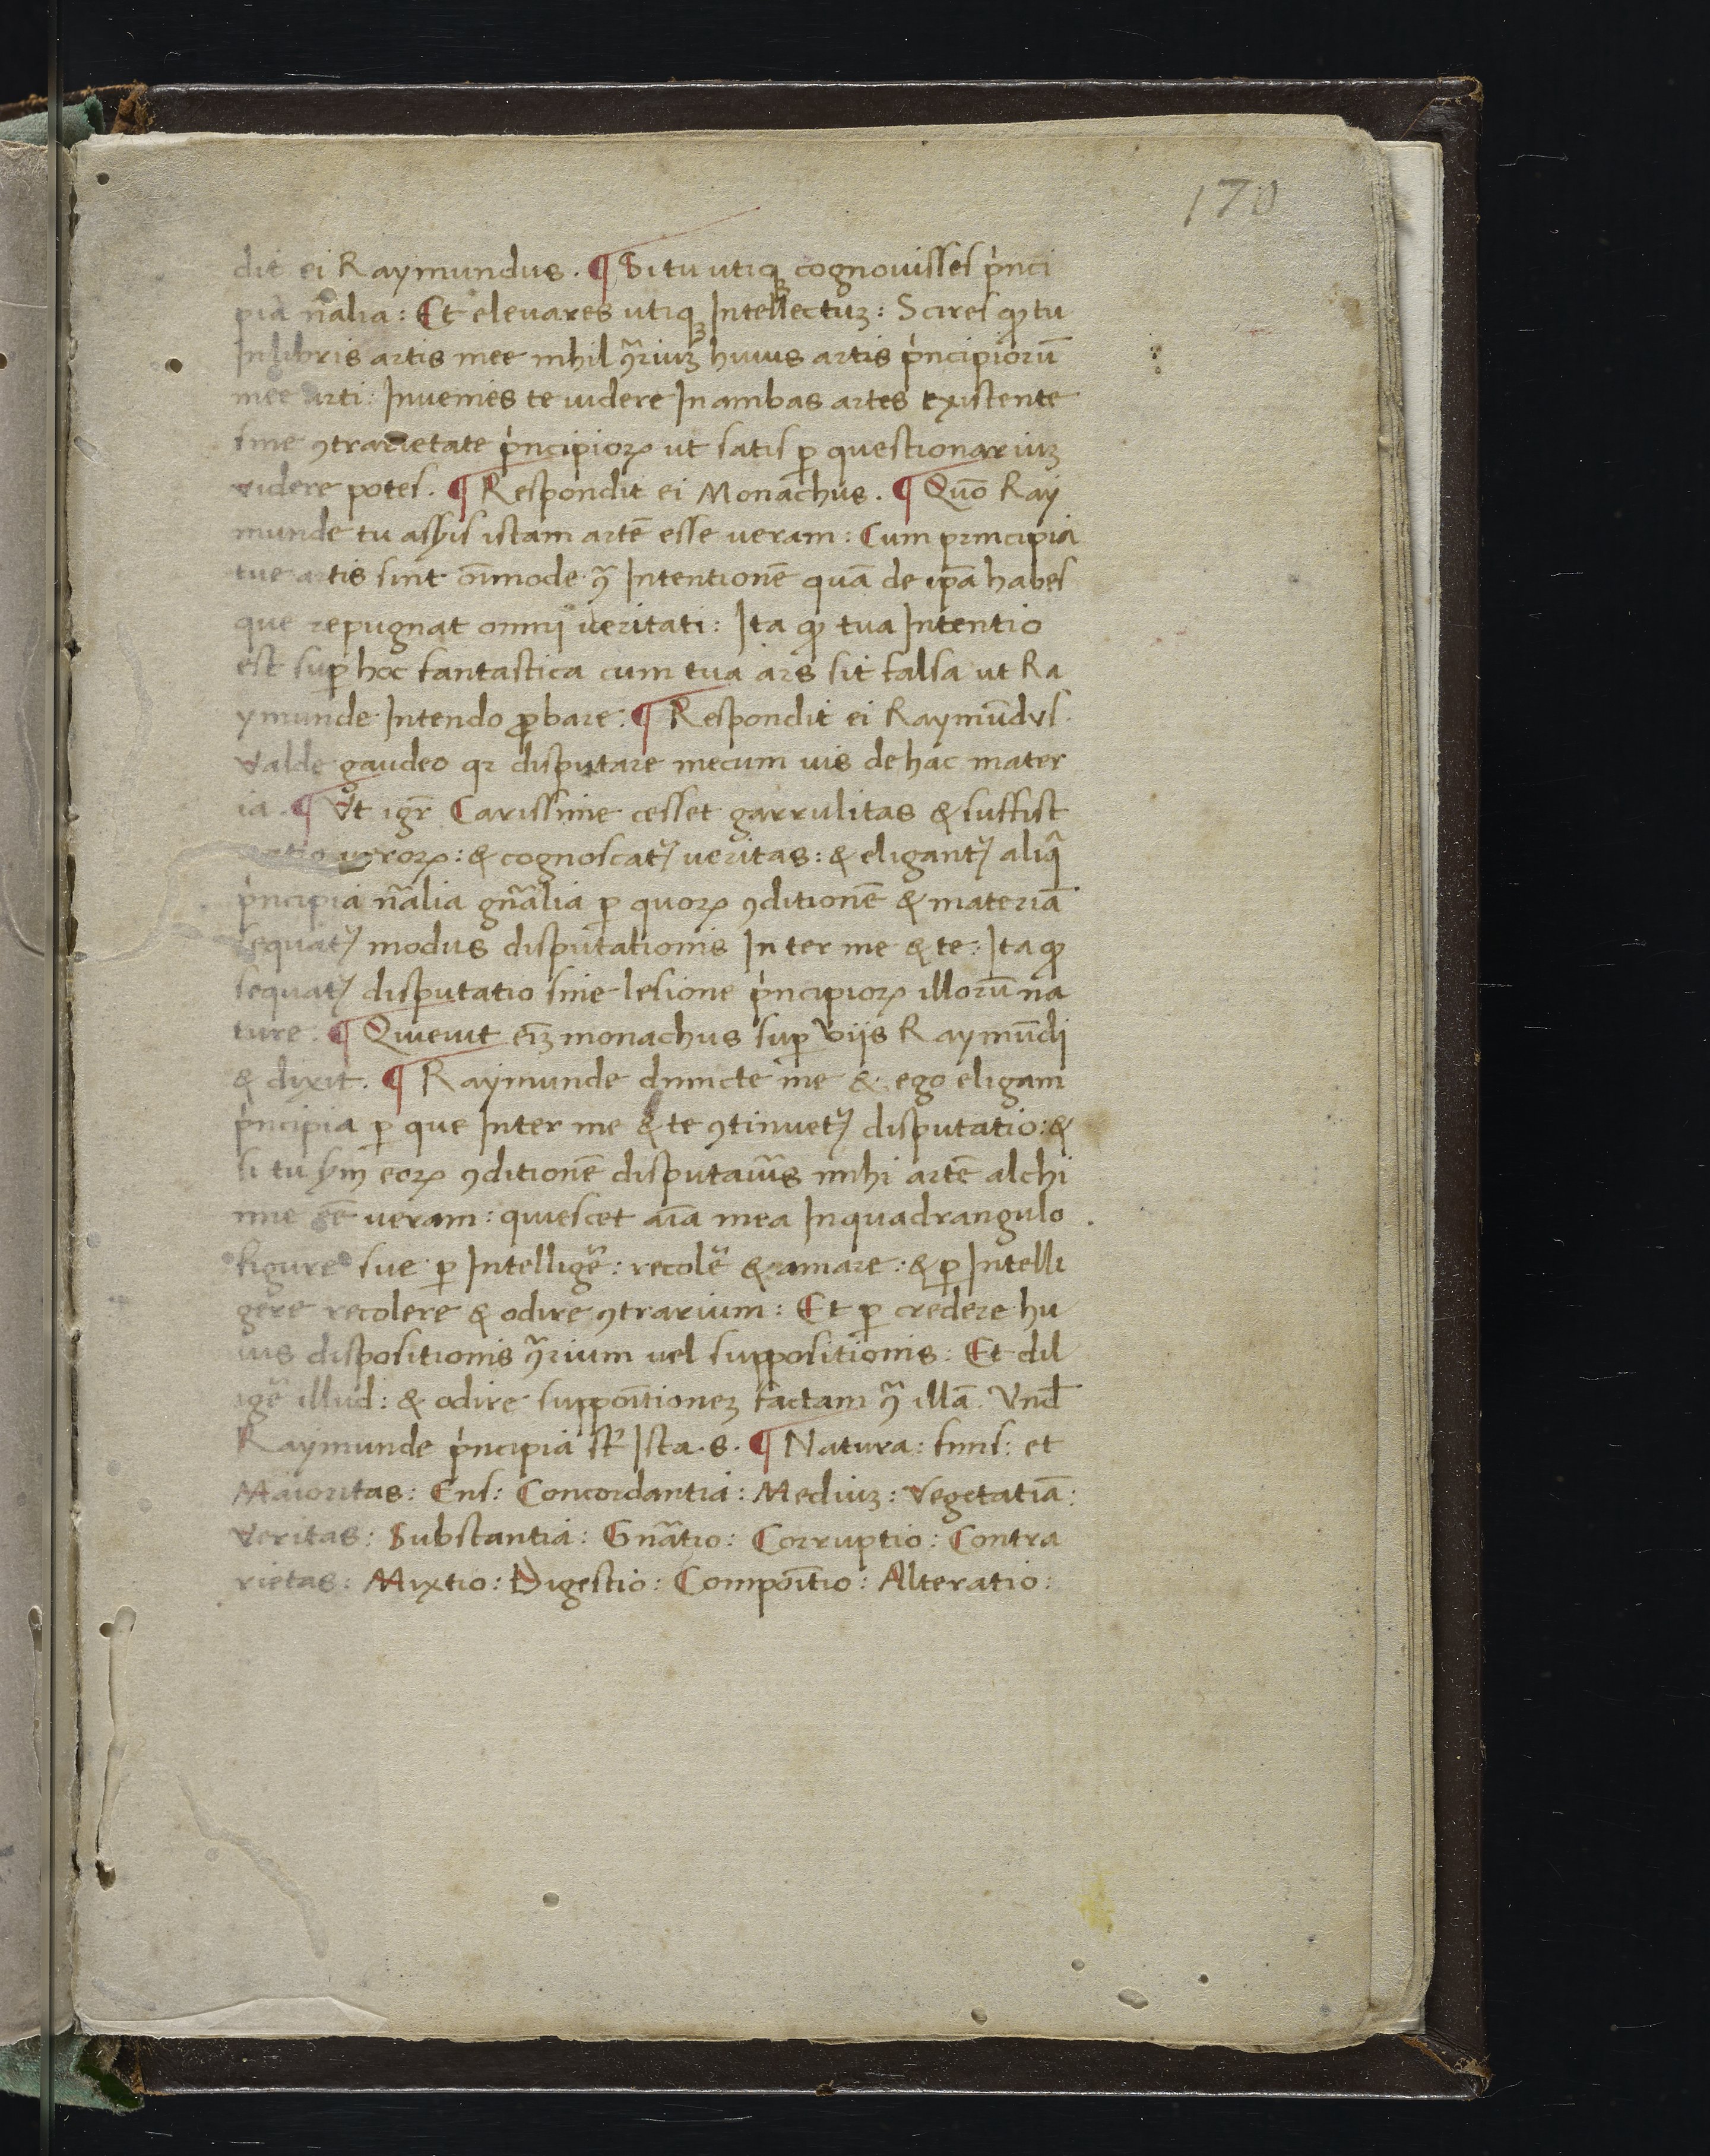 170
dit ei Raymundus. ¶ Si tu utiqꝫ cognouisses pͥnci
pia nãlia: Et eleuares utiqꝫ Intellectuꝫ: Scires ꝙ tu
In libris artis mee nihil ꝯ̃riuꝫ huius artis pͥncipiorũ
mee arti: Inuenies te uidere In ambas artes existente
sine ꝯtrarietate pͥncipioꝝ ut satis ꝑ questionariuꝫ
videre potes. ¶ Respondit ei Monachus. ¶ Quõ Ray
munde tu istam artẽ esse ueram: Cum principia
tue artis sint õnmode ꝯ̃ Intentionẽ quã de ip̃a habes
que repugnat omnij ueritati: Ita ꝙ tua Intentio
est suꝑ hoc fantastica cum tua ars sit falsa ut Ra
ymunde Intendo ꝓbare: ¶ Respondit ei Raymũdus.
Valde gaudeo qꝛ disputare mecum uis de hac mater
ia. ¶ Vt igr̃ Carissime cesset garrulitas & suffist
uerboꝝ: & cognoscatᷣ ueritas: & eligantᷣ aliqᷓ
pͥncipia nãlia gñalia ꝑ quoꝝ ꝯditionẽ & materiã
sequatᷣ modus disputationis In ter me & te: Ita ꝙ
sequatᷣ disputatio sine lesione pͥncipioꝝ illorũ na
ture: ¶ Quieuit eĩꝫ monachus suꝑ Viis Raymũdi
& dixit. ¶ Raymunde dimicte me & ego eligam
pͥncipia ꝑ que Inter me & te ꝯtinuetᷣ disputatio: &
si tu eoꝝ ꝯditionẽ disputauĩs mihi artẽ alchi
mie eẽ ueram: quiescet aĩa mea In quadrangulo
figure sue ꝑ Intelligẽ: recolẽ & amare: & ꝑ Intelli
gere recolere & odire ꝯtrarium: Et ꝑ credere hu
ius dispositionis ꝯ̃rium uel suppositionis: Et dil
igẽ illud: & odire suppoĩtioneꝫ factam ꝯ̃ illã. Vnđ
Raymunde pͥncipia st̃ Ista .s. ¶ Natura: finis: et
Maioritas: Ens: Concordantia: Mediuꝫ: Vegetatiã:
Veritas: Substantia: Gñatio: Corruptio: Contra
rietas: Mixtio: Digestio: Compoĩtio: Alteratio: